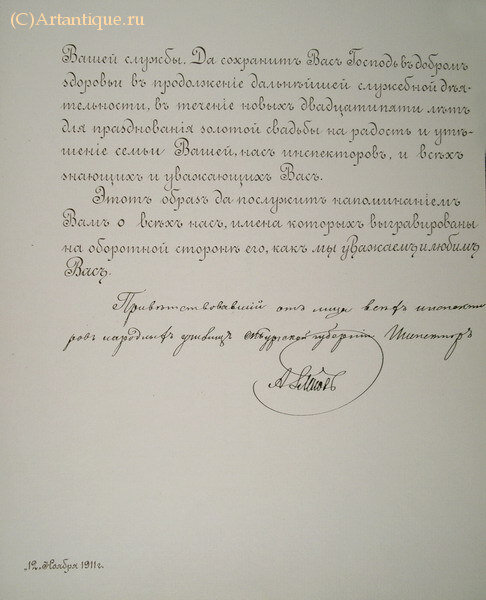 (C)Artantique.ru
Вашей службы. Да сохранитъ Васъ Господь въ добромъ
здоровьи въ продолженіе дальнѣйшей служебной дѣя-
тельности, въ теченіе новыхъ двадцатипяти лѣтъ
для празднованія золотой свадьбы на радость и утѣ-
шеніе семьи Вашей, насъ инспекторовъ, и всѣхъ
знающихъ и уважающихъ Васъ.
Этотъ образъ да послужитъ напоминаніемъ
Вамъ о всѣхъ насъ, имена которыхъ выгравированы
на оборотной сторонѣ его, какъ мы уважаемъ и любимъ
Васъ.
Привѣтствовавшій отъ лица всѣхъ инспекто
ровъ народныхъ училищъ губерніи Инспекторъ
12. Ноября 1911 г.